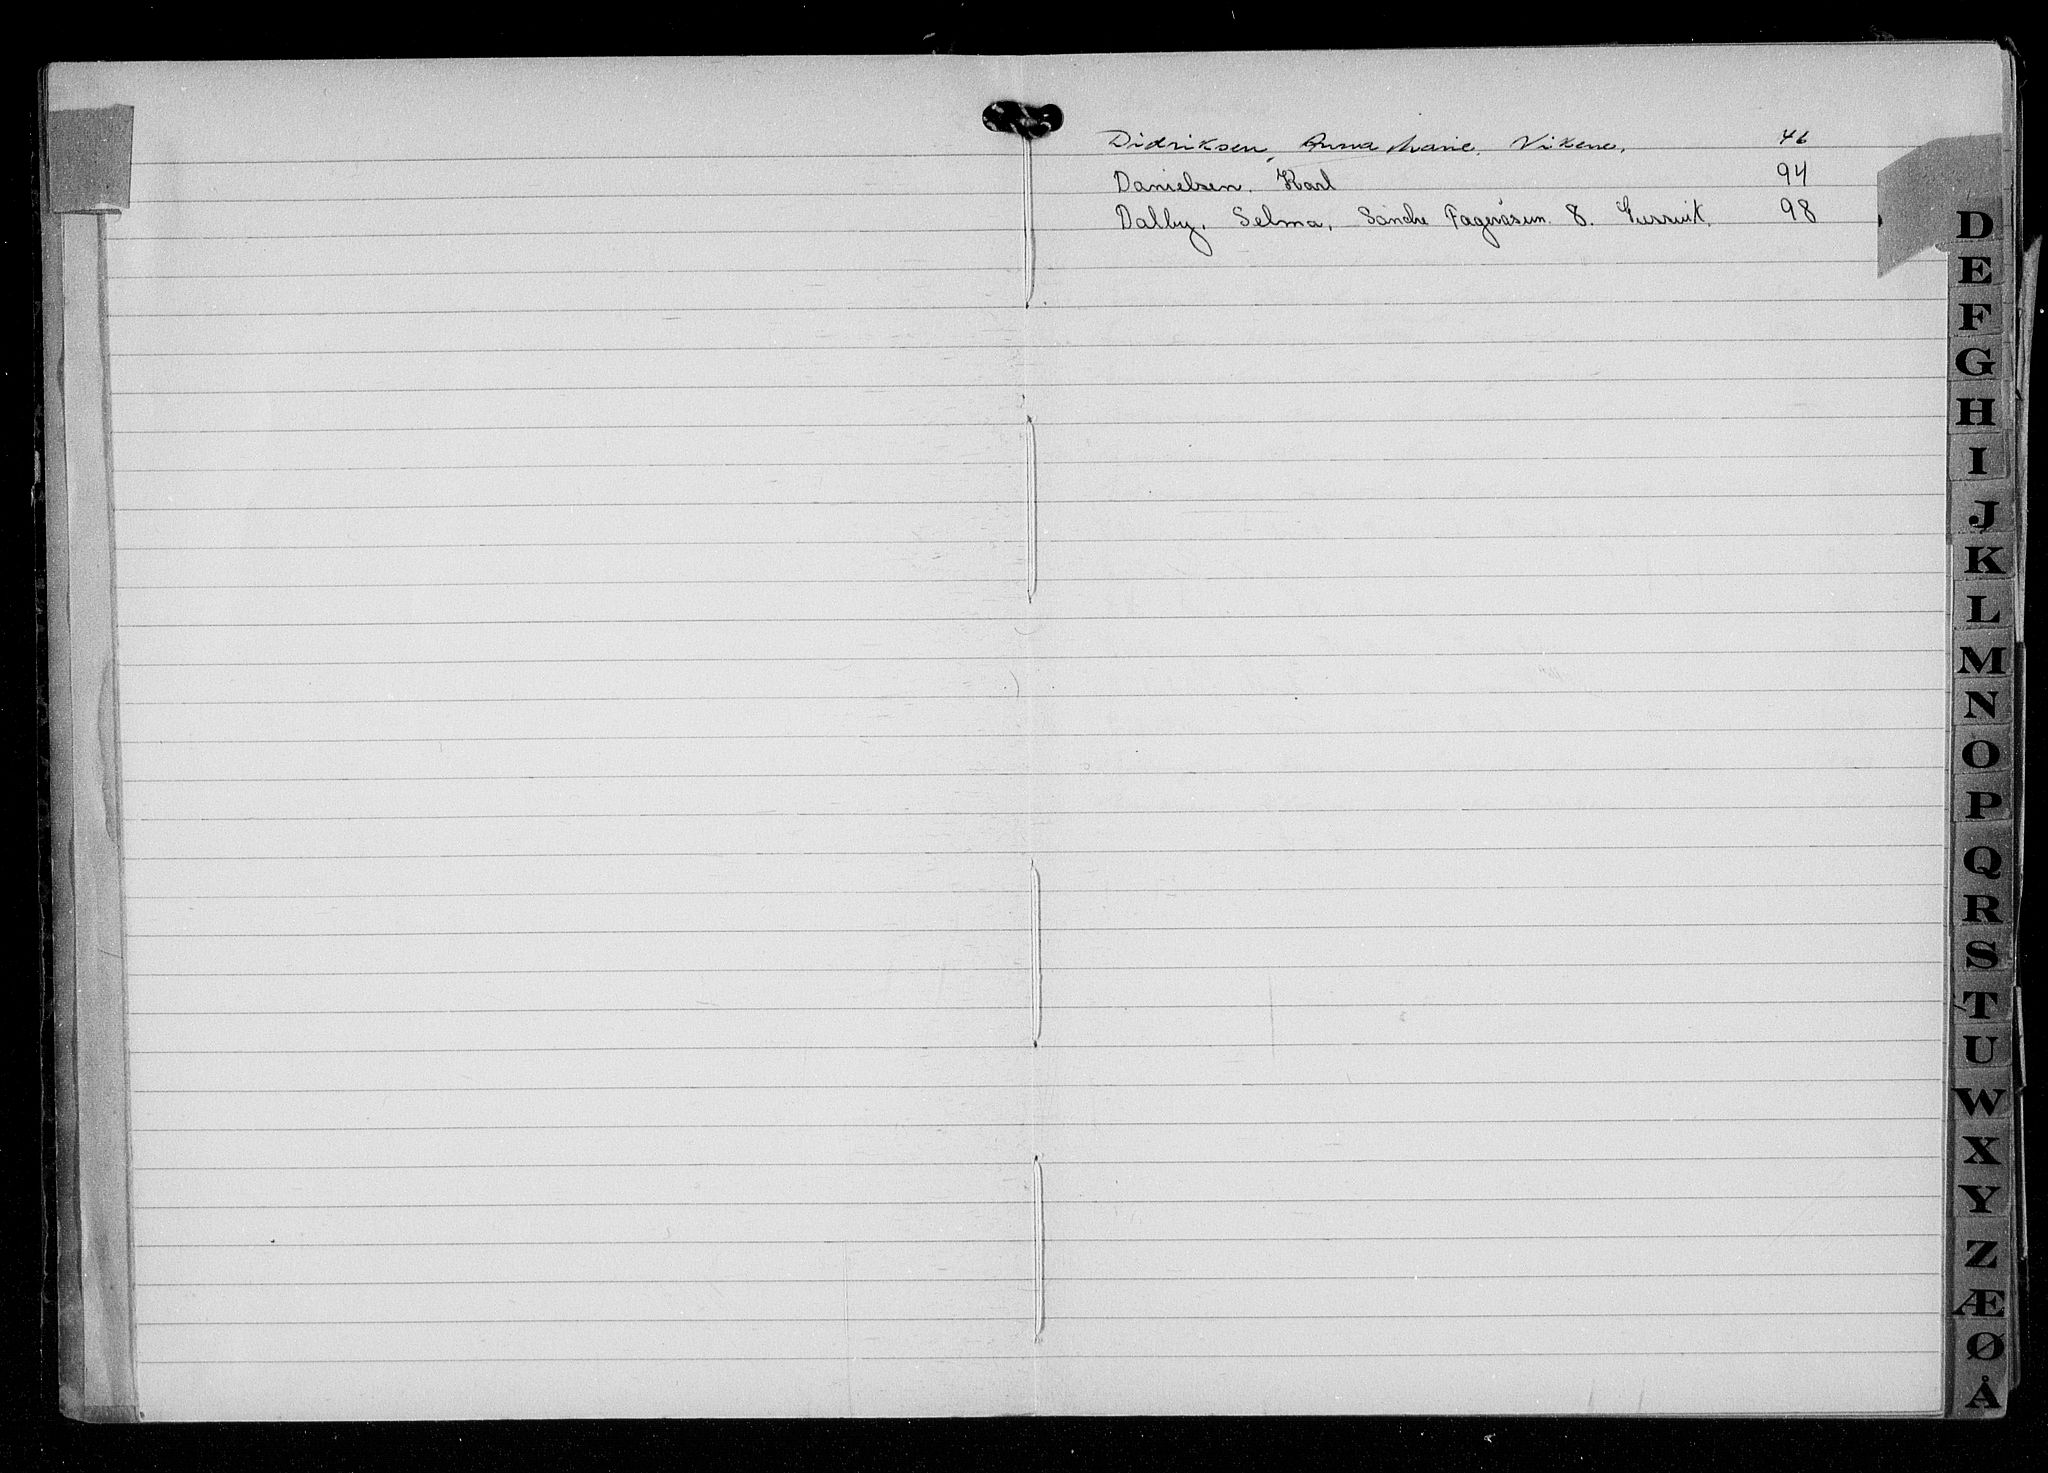 Didriksen, Anna Marie. Vikene. 46
Danielsen. Karl 94
Dalby. Selma. Søndre Fageråsen. 8. Gressvik. 98
D
E
F
G
H
I
J
K
L
M
N
O
P
Q
R
S
T
U
W
X
Y
Z
Æ
Ø
Å